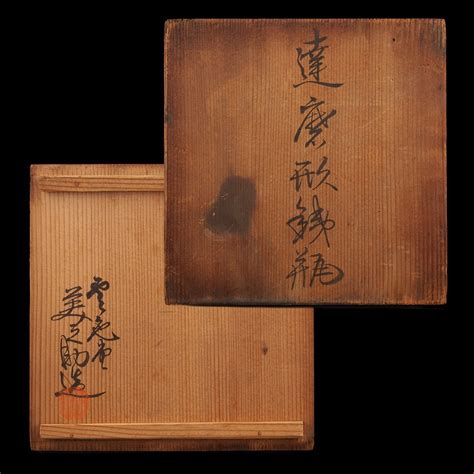 達磨形鉄瓶
雲色堂
美之助造